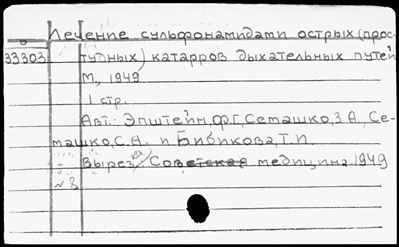 Лечение сульфонамидами острых (прос-
33303 тудных) катарров дыхательных путей
М., 1949
1 стр.
Авт.: Эпштейн, Ф.Г, Семашко, З А., Се-
машко, С.А. и Бибикова, Т.П.
Вырез. Советская медицина 1949
№ 8